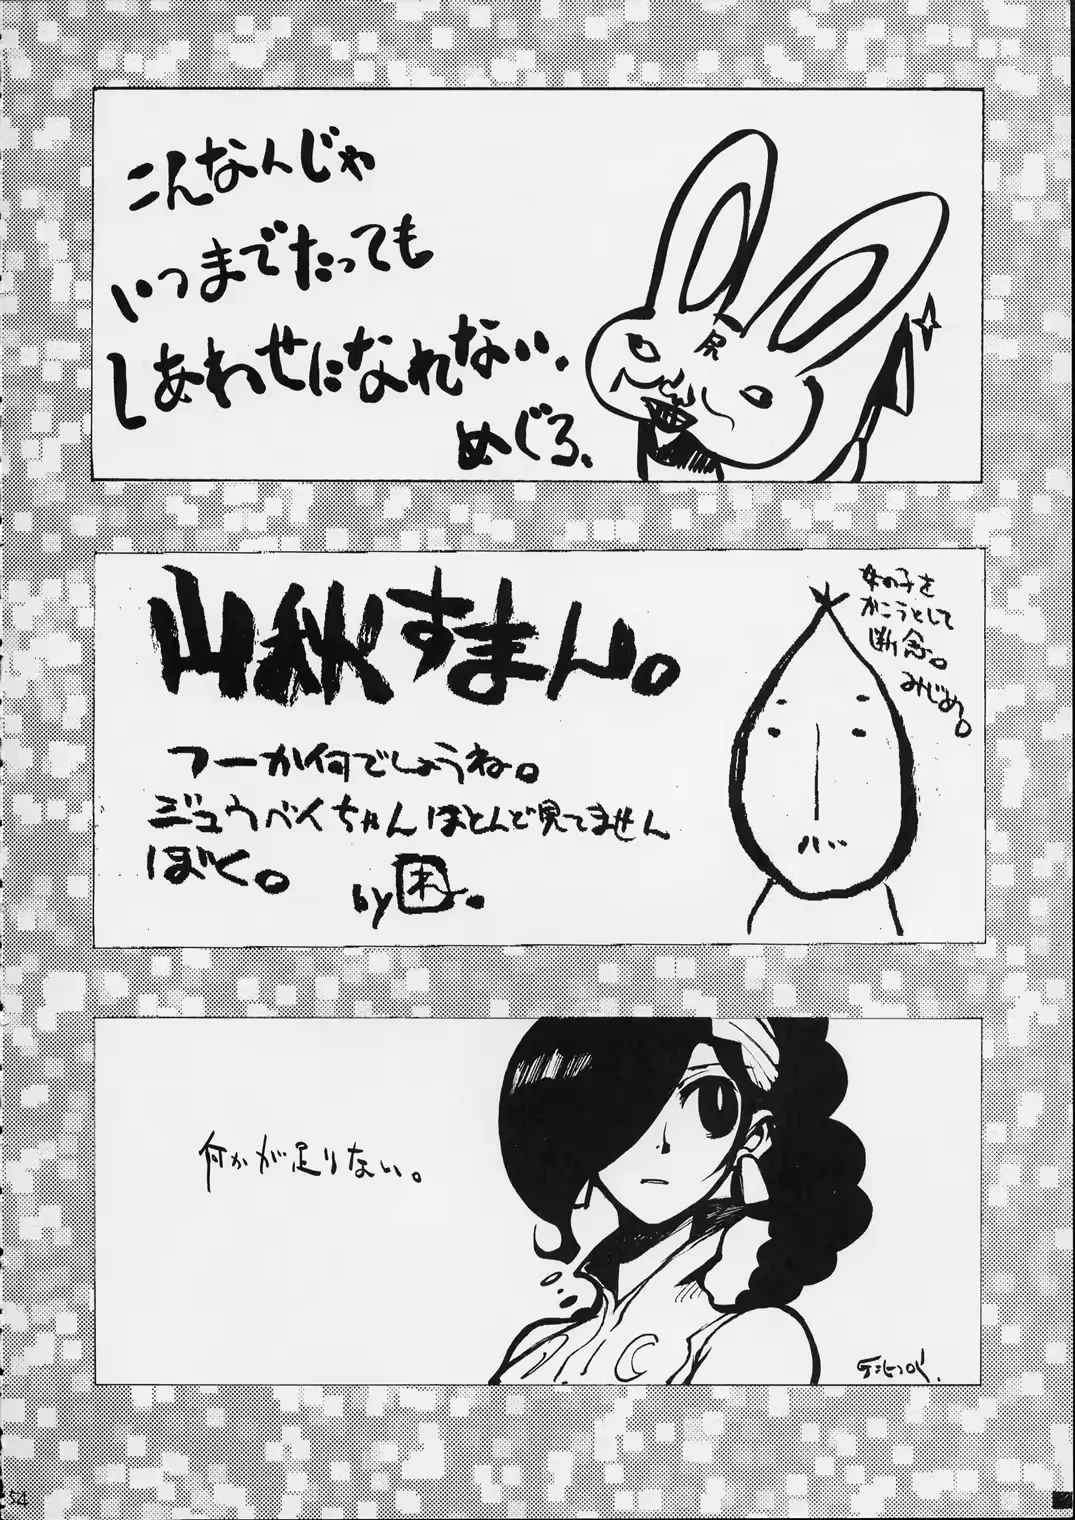 こんなんじゃ
いつまでたっても
しあわせになれない、
めぐろ、
尻
山秋すまん。
女の子を
かこうとして
断念。
みじめ。
フーか何でしょうね。
ジュウベイちゃんほとんど見てません
ぼく。
by困。
何かが足りない。
54